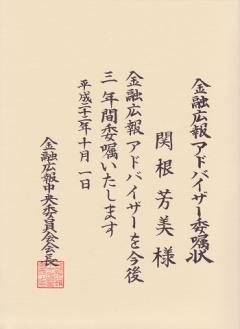 金融広報アドバイザー委嘱状
関根芳美様
金融広報アドバイザーを今後
三年間委嘱いたします
平成二十二年十月一日
金融広報中央委員会会長